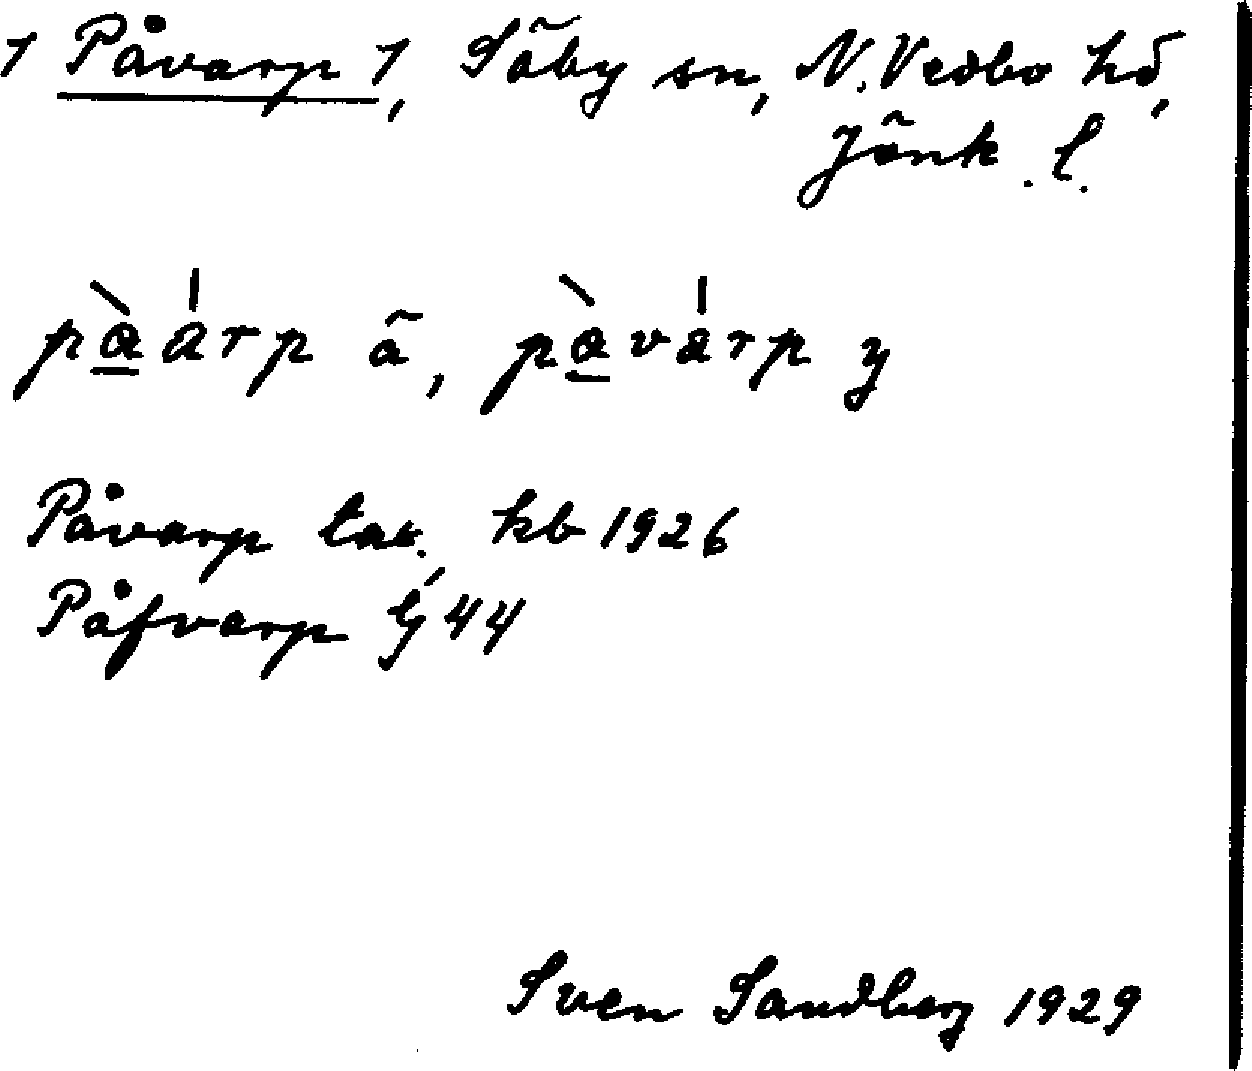 1 Påvarp 1, Säby sn, N. Vedbo hd,
Jönk. l.
pàárp ä, pàvárp y
Påvarp tax. kb 1926
Påfvarp G 44
Sven Sandberg 1929